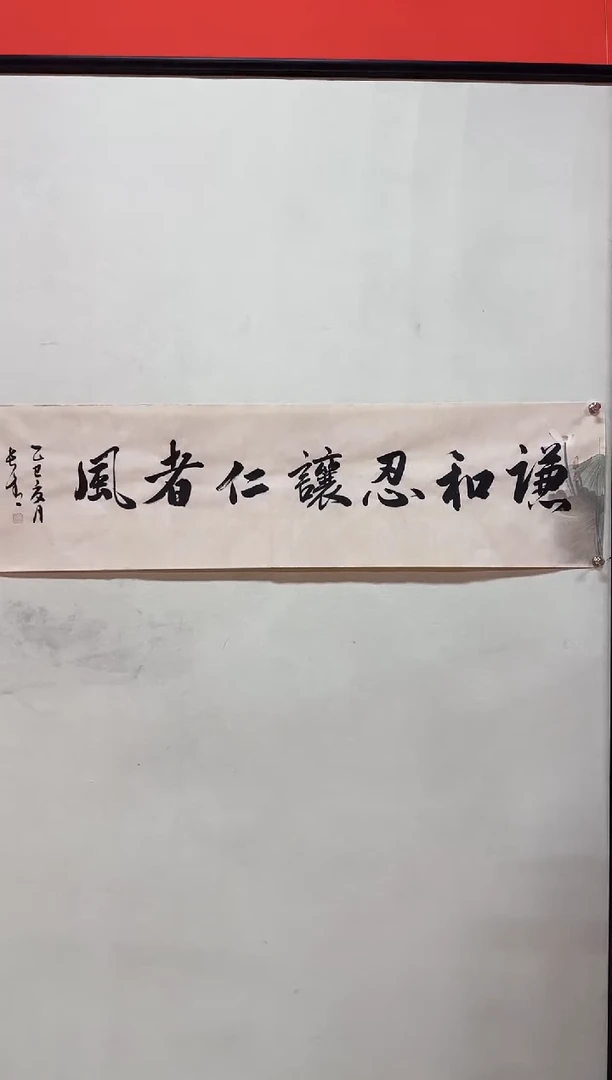 謙和忍讓仁者風
乙巳夏月